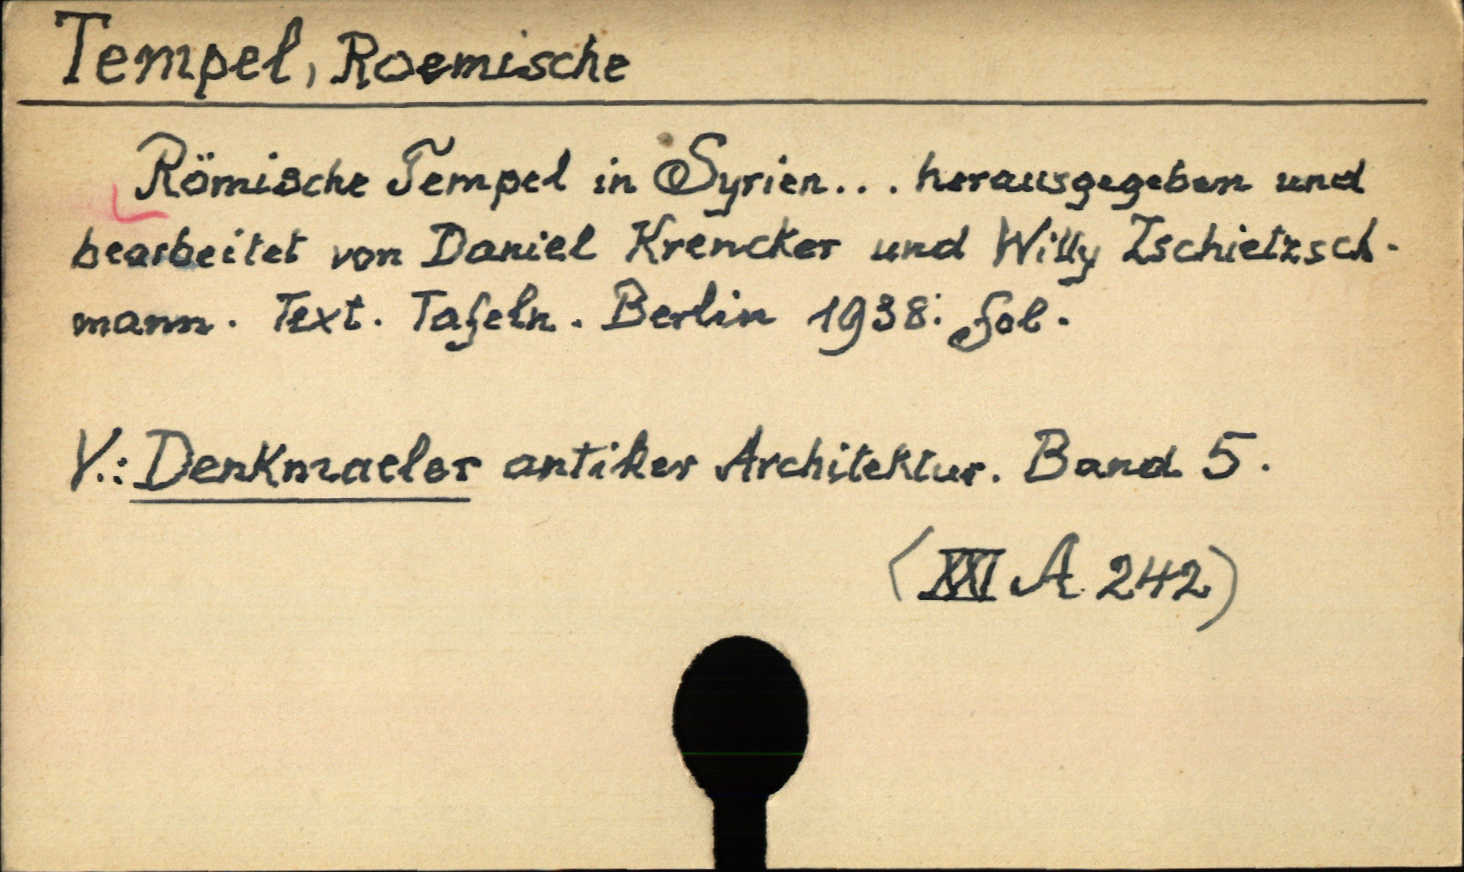 Tempel, Roemische
Römische Tempel in Syrien... herausgegeben und
bearbeitet von Daniel Krencker und Willy Zschietzsch-
mann. Text. Tafeln. Berlin 1938: fol.
V.: Denkmaeler antiker Architektur. Band 5.
(XXI A. 242)